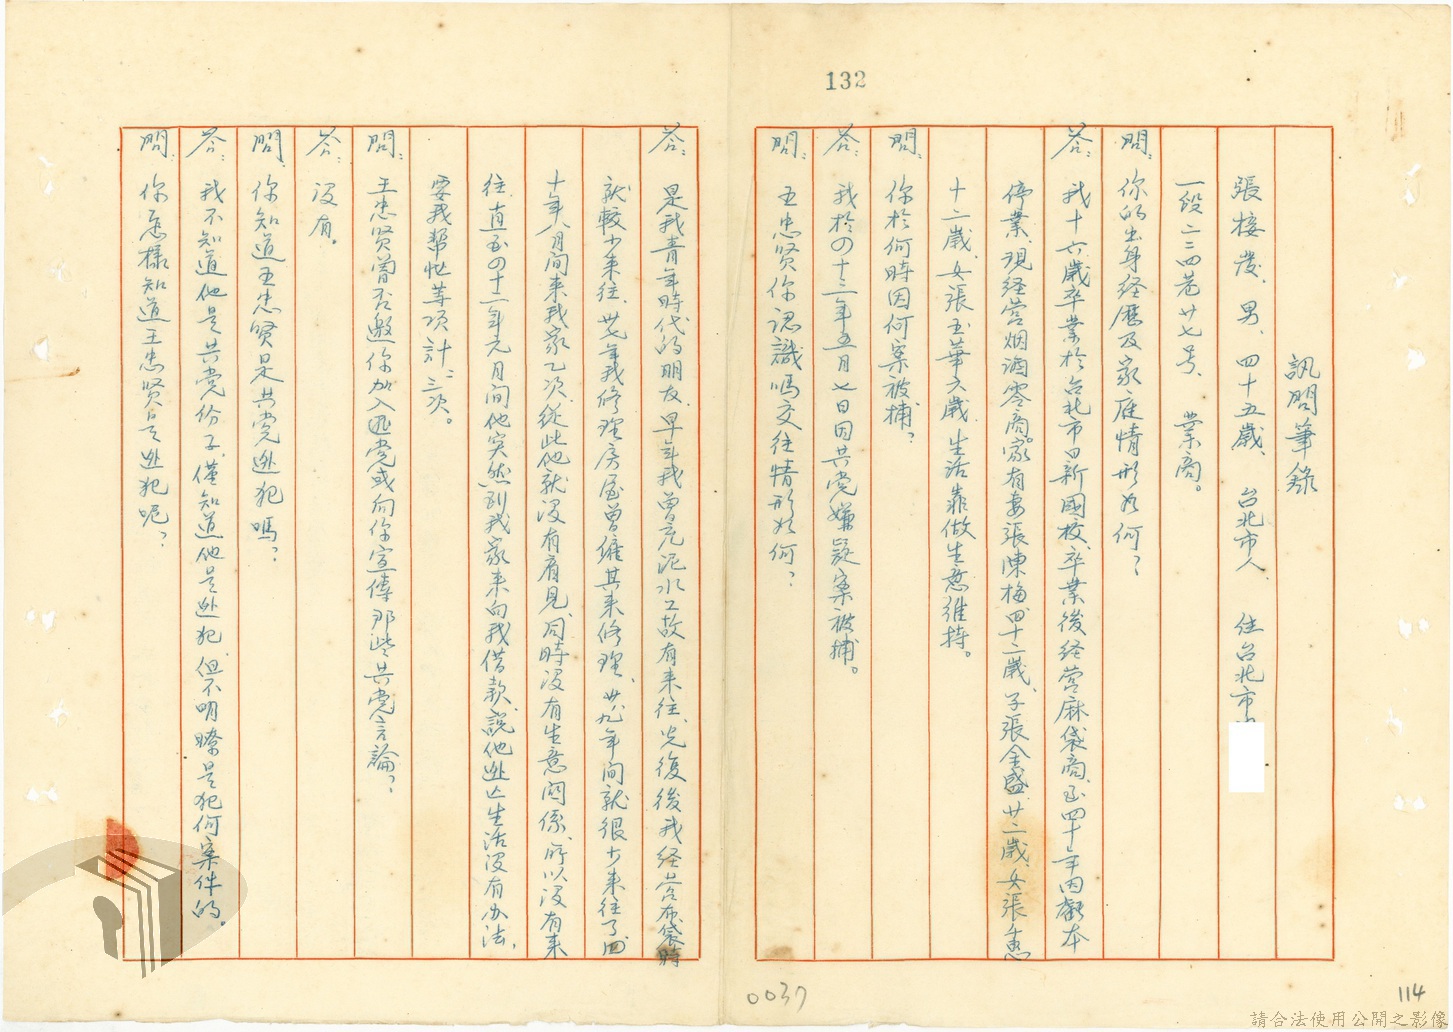 132
訊問筆錄
張接發、男、四十五歲、台北市人 住台北市
一段二三四巷廿七号、業商。
問：你的出身経歷及家庭情形如何？
答：我十六歲卒業於台北市日新國校、卒業後経营麻袋商、至四十年因虧本
停業、現経营烟酒零商。家有妻張陳梅四十二歲、子張金盛廿二歲、女張千惠
十二歲、女張玉華六歲、生活靠做生意維持。
問：你於何時因何案被捕？
答：我於四十三年五月七日因共党嫌疑案被捕。
問：王忠贤你認識嗎交往情形如何？
答：是我青年時代的朋友、早年我曾充泥水工故有來往、光復後我経营布袋時
就較少來往、卅七年我修理房屋曾僱其來修理、卅九年间就很少來往了四
十年八月间來我家乙次、從此他就没有看見、同時没有生意関係、所以没有來
往、直至四十二年元月间他突然到我家來向我借款、說他逃亡生活没有办法、
要我帮忙等项計二三次。
問：王忠贤曾否邀你加入匪党或向你宣傳那些共党言論？
答：没有。
問：你知道王忠贤是共党逃犯嗎？
答：我不知道他是共党份子、僅知道他是逃犯、但不明瞭是犯何案件的。
問：你怎樣知道王忠贤是逃犯呢？
0037
114
請合法使用公開之影像